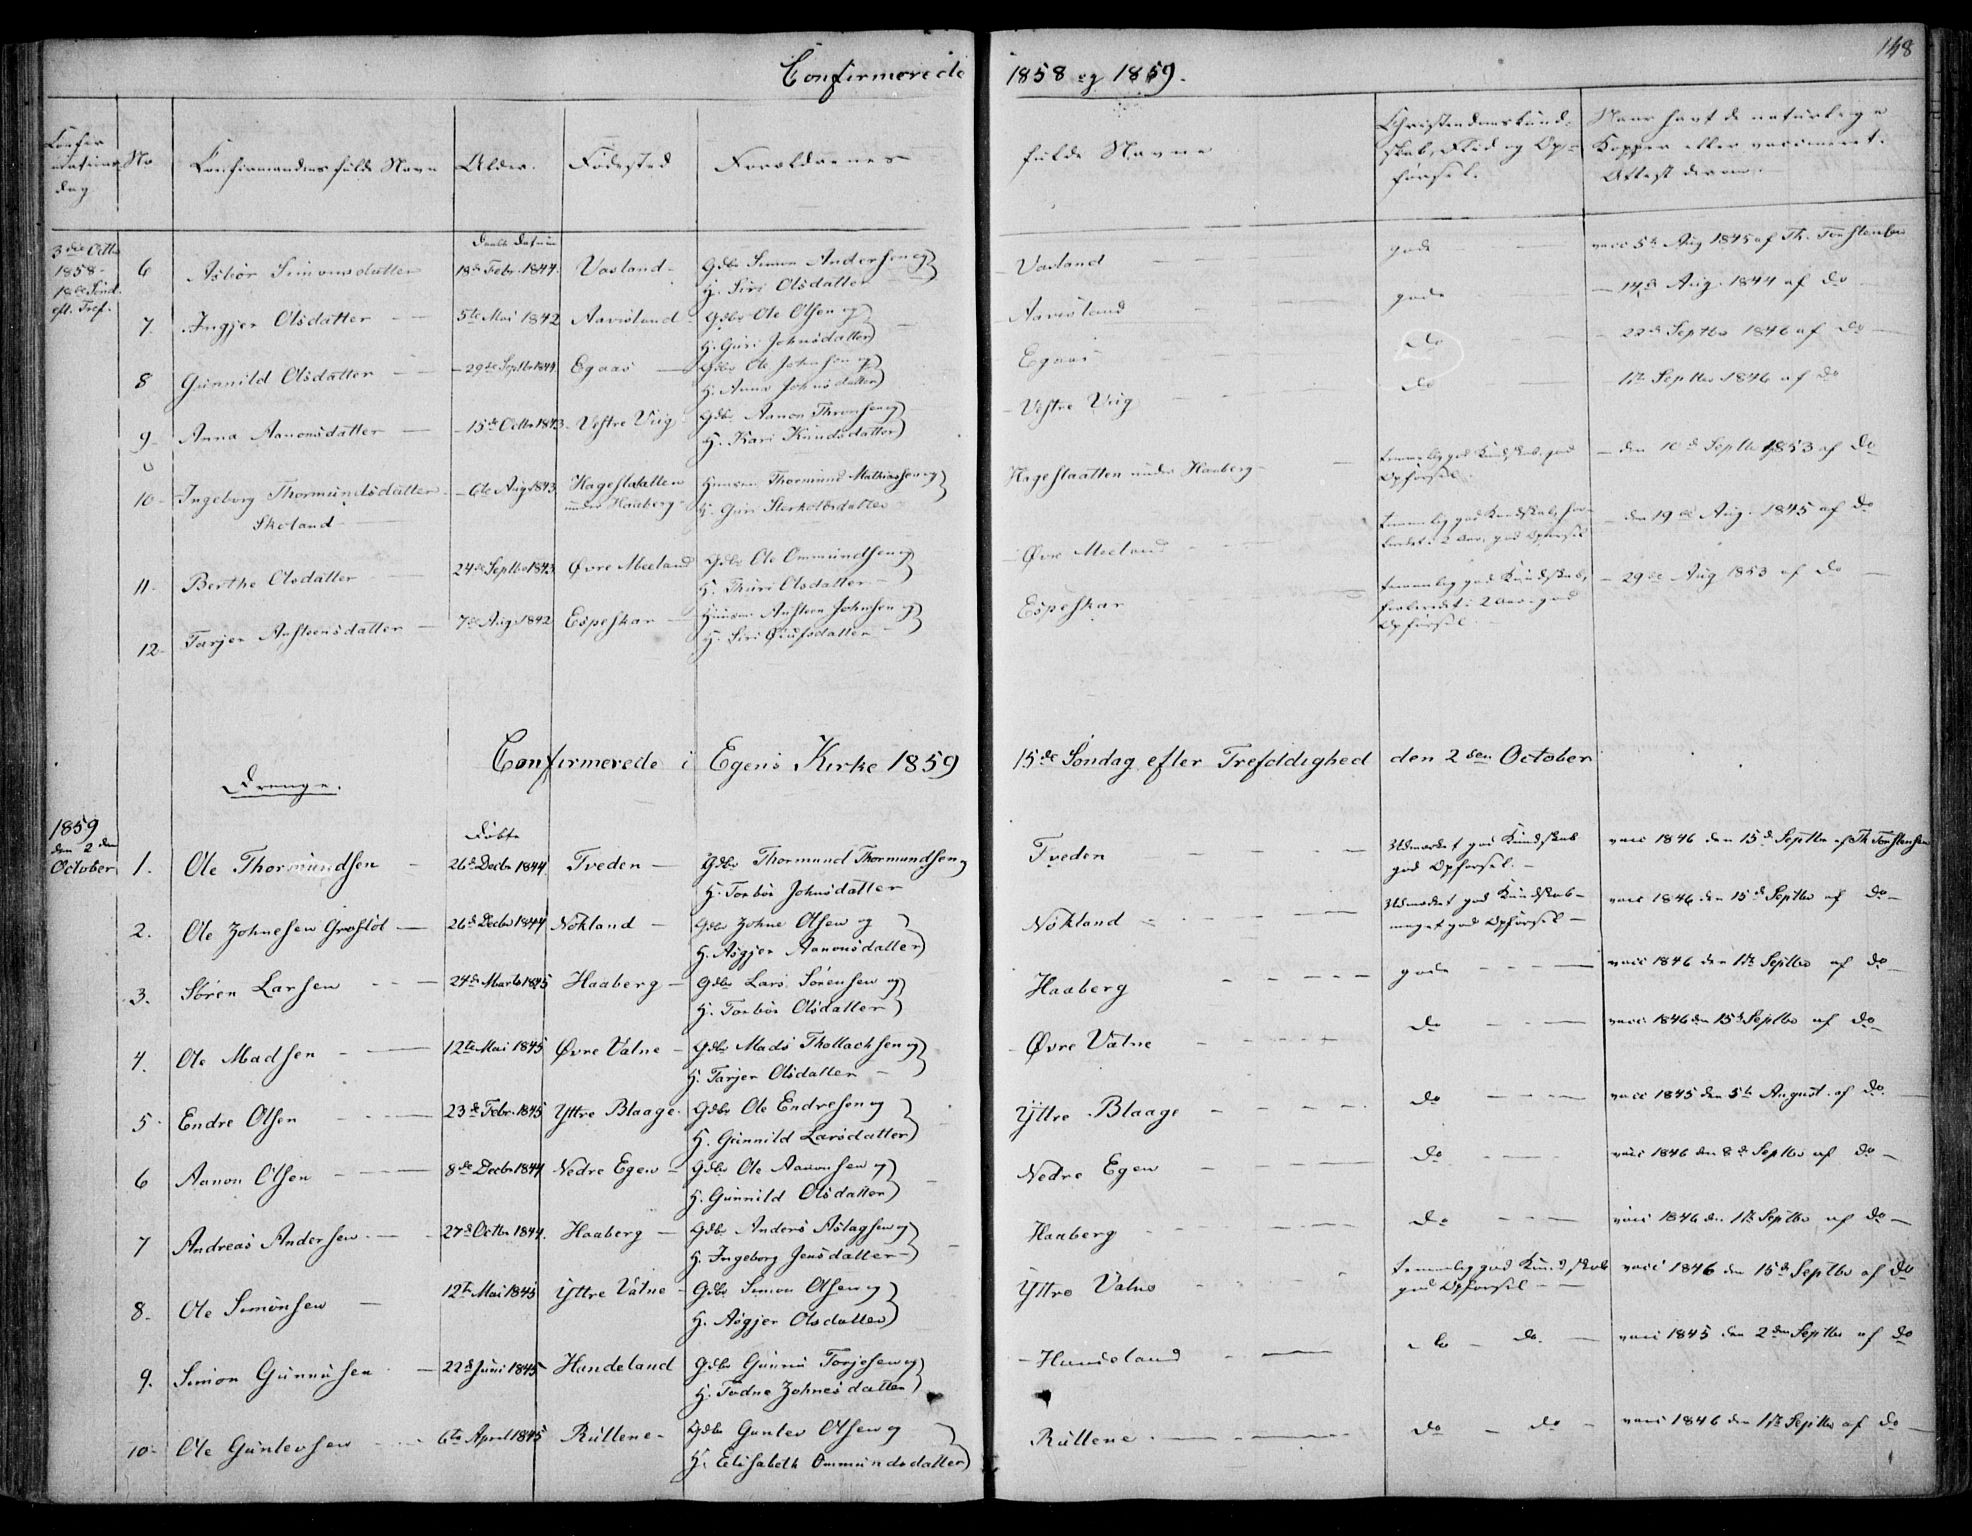 148
Confirmerede 1858 og 1859.
Confirmations dag No Confirmandens fulde Navn Alder. Fødested Forældrenes fulde Navne Christendomskundskab, Flid og Opførsel. Naar havt de naturlige Kopper eller vaccineret. Attest derom.
3die Octbr 1858
6 Asbør Simonsdatter 18de Febr. 1844. Vasland Gdbr Simon Andersen og Vasland gode vacc 5te Aug 1845 af Th. Torstensen
H. Siri Olsdatter
7. Ingjer Olsdatter 5te Mai 1842 Aavesland Gdbr Ole Olsen og Aavesland gode 14de Aug. 1844 af do
H. Guri Johnsdatter
8 Gunnild Olsdatter 29de Septbr 1844 Egaas Gdbr Ole Johnsen og Egaas do 22de Septbr 1846 af do
H. Anna Johnsdatter
9. Anna Aanonsdatter 15de Octbr 1843 Vestre Viig Gdbr Aanon Thronsen og Vestre Viig do 17de Septbr 1846 af do
H. Kari Knudsdatter
10. Ingeborg Thormundsdatter 6te Aug 1843 Hagestatten Huusm. Thormund Mathiassen og Hagestaatten under Haaberg temmelig god Kundskab, god den 10de Septbr 1853 af do
Skoland under Haaberg H. Guri Sterkolvsdatter Opførsel
11. Berthe Olsdatter 24de Septbr 1843 Øvre Meeland Gdbr Ole Ommundsen og Øvre Meeland temmelig god Kundskab, god Opførsel den 19de Aug. 1845 af do
H. Thuri Olsdatter
12. Tarjer Anstensdatter 7de Aug. 1842 Espeskar Huusm. Ansteen Johnsen og Espeskar temmelig god Kundskab, 29de Aug 1853 af do
H. Siri forberedt i 2 Aar. god Opførsel.
Confirmerede i Egens Kirke 1859 15de Søndag efter Trefoldighed den 2den October
Drenge.
1859 den 2den October Fødte
1. Ole Thormundsen 26de Decbr 1844 Tveden Gdbr Thormund Thormundsen og Tveden Udmærket god Kundskab vacc 1846 den 15de Septbr af Th Torstensen
H. Torbør Johnsdatter god Opførsel.
2. Ole Johnesen Grostøl 26de Decbr 1844 Nökland Gdbr Johne Olsen og Nökland Udmærket god Kundskab vacc 1846 den 15de Septbr af do
H. Asgjer Aanonsdatter meget god Opførsel
3. Sören Larsen 24de Marts 1845 Haaberg Gdbr Lars Sörensen og Haaberg gode vacc 1846 den 17de Septbr af do
H. Torbör Olsdatter
4. Ole Madsen 12te Mai 1845 Øvre Vatne Gdbr Mads Thollachsen og Øvre Vatne do vacc 1846 den 15de Septbr af do
H. Tarjer Olsdatter
5. Endre Olsen 23de Febr. 1845 Yttre Blaage Gdbr Ole Endresen og Yttre Blaage do vacc 1845 den 5te August. af do
H. Gunnild Larsdatter
6 Aanon Olsen 8de Decbr 1844 Nedre Egen Gdbr Ole Aanonsen og Nedre Egen do vacc 1846 den 8de Septbr af do
H. Gunnild Olsdatter
7 Andreas Andersen 27de Octbr 1844. Haaberg Gdbr Anders Aslagsen og Haaberg do vacc 1846 den 17de Septbr af do
H. Ingeborg Jensdatter
8. Ole Simonsen 12te Mai 1845 Yttre Vatne Gdbr Simon Olsen og Yttre Vatne temmelig god Kundskab vacc 1846 den 15de Septbr af do
H. Asgjer Olsdatter god Opførsel
9. Simon Gunnusen 22de Juni 1845 Hundeland Gdbr Gunnu Torjesen og Hundeland do do vacc 1845 den 2den Septbr af do
H. Todne Johnesdatter
10 Ole Gunlevsen 6te April 1845 Rullene Gdbr Gunlev Olsen og Rullene do do vacc 1846 den 17de Septbr af do
H. Elisabeth Ommundsdatter